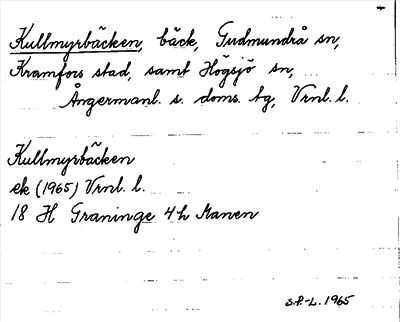 Kullmyrbäcken, bäck, Gudmundrå sn,
Kramfors stad, samt Högsjö sn,
Ångermanl. s. doms. tg, Vrnl. l.
Kullmyrbäcken
ek (1965) Vrnl. l.
18 H Graninge 4h Manen
S.P.-L. 1965